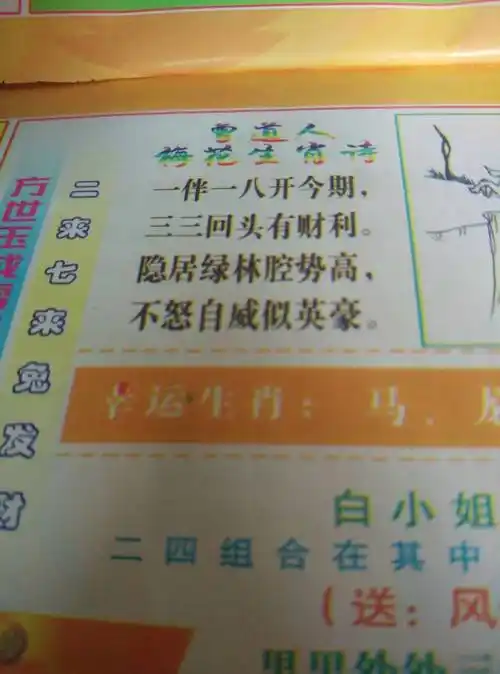 曾道人
梅花生肖诗
一伴一八开今期,
三三回头有财利。
隐居绿林腔势高,
不怒自威似英豪。
二来七来兔发财
方世玉
幸运生肖: 马、
白小姐
二四组合在其中
(送: 风
里里外外三